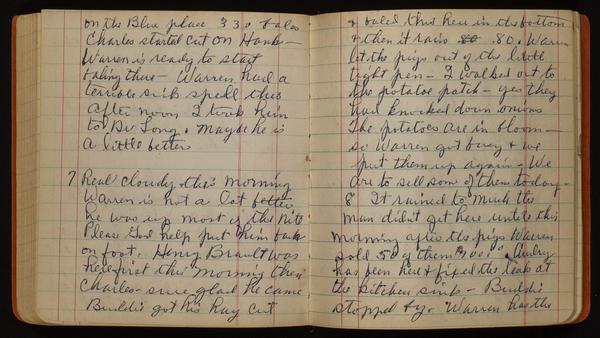 on the Blue place 330 bales
Charles started cut on Hanks -
Warren is ready to start
baling there - Warren had a
terrible sick spell this
after noon I took him
to Dr Long. Maybe he is
a little better
7 Real cloudy this morning
Warren is not a lot better
he was up most of the nite
Please God help put him back
on foot. Henry Brandt was
here first this morning then
Charles - sure glad he came
Buddie got his hay cut
& baled this here in the bottom
& then it rains .80. Warren
let the pigs out of the little
right pen - I walked out to
the potatoe patch - yes they
had knocked down onions
The potatoes are in bloom -
so Warren got busy & we
put them up again - We
are to sell som of them today -
8 It rained to much the
man didn't get here until this
morning after the pigs Warren
sold 50 of them Audry
has been here & fixed the leak at
the kitchen sink - Buddie
stopped by. Warren has the